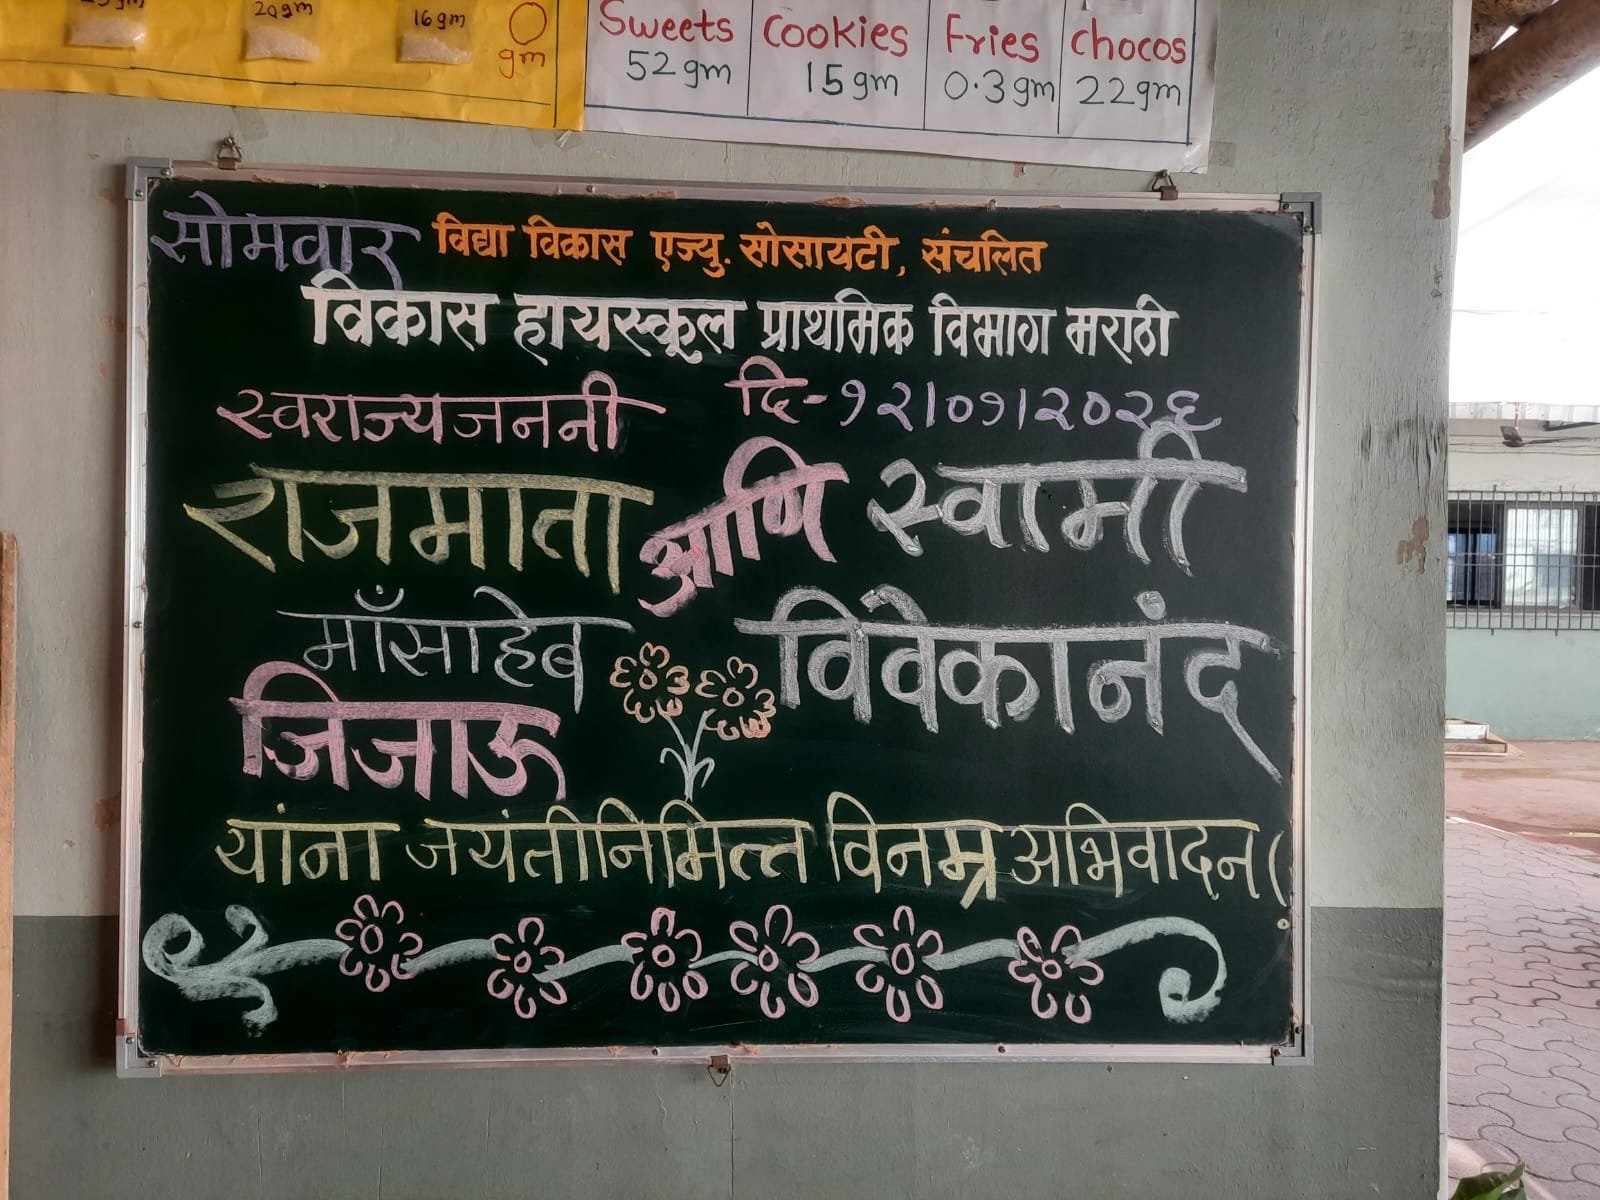 20gm 16gm 0 gm
Sweets Cookies Fries Chocos
52gm 15gm 0.3gm 22gm
सोमवार विद्या विकास एज्यु. सोसायटी, संचलित
विकास हायस्कूल प्राथमिक विभाग मराठी
स्वराज्यजननी दि-१२/०१/२०२६
राजमाता आणि स्वामी
माँसाहेब विवेकानंद
जिजाऊ
यांना जयंतीनिमित्त विनम्र अभिवादन!